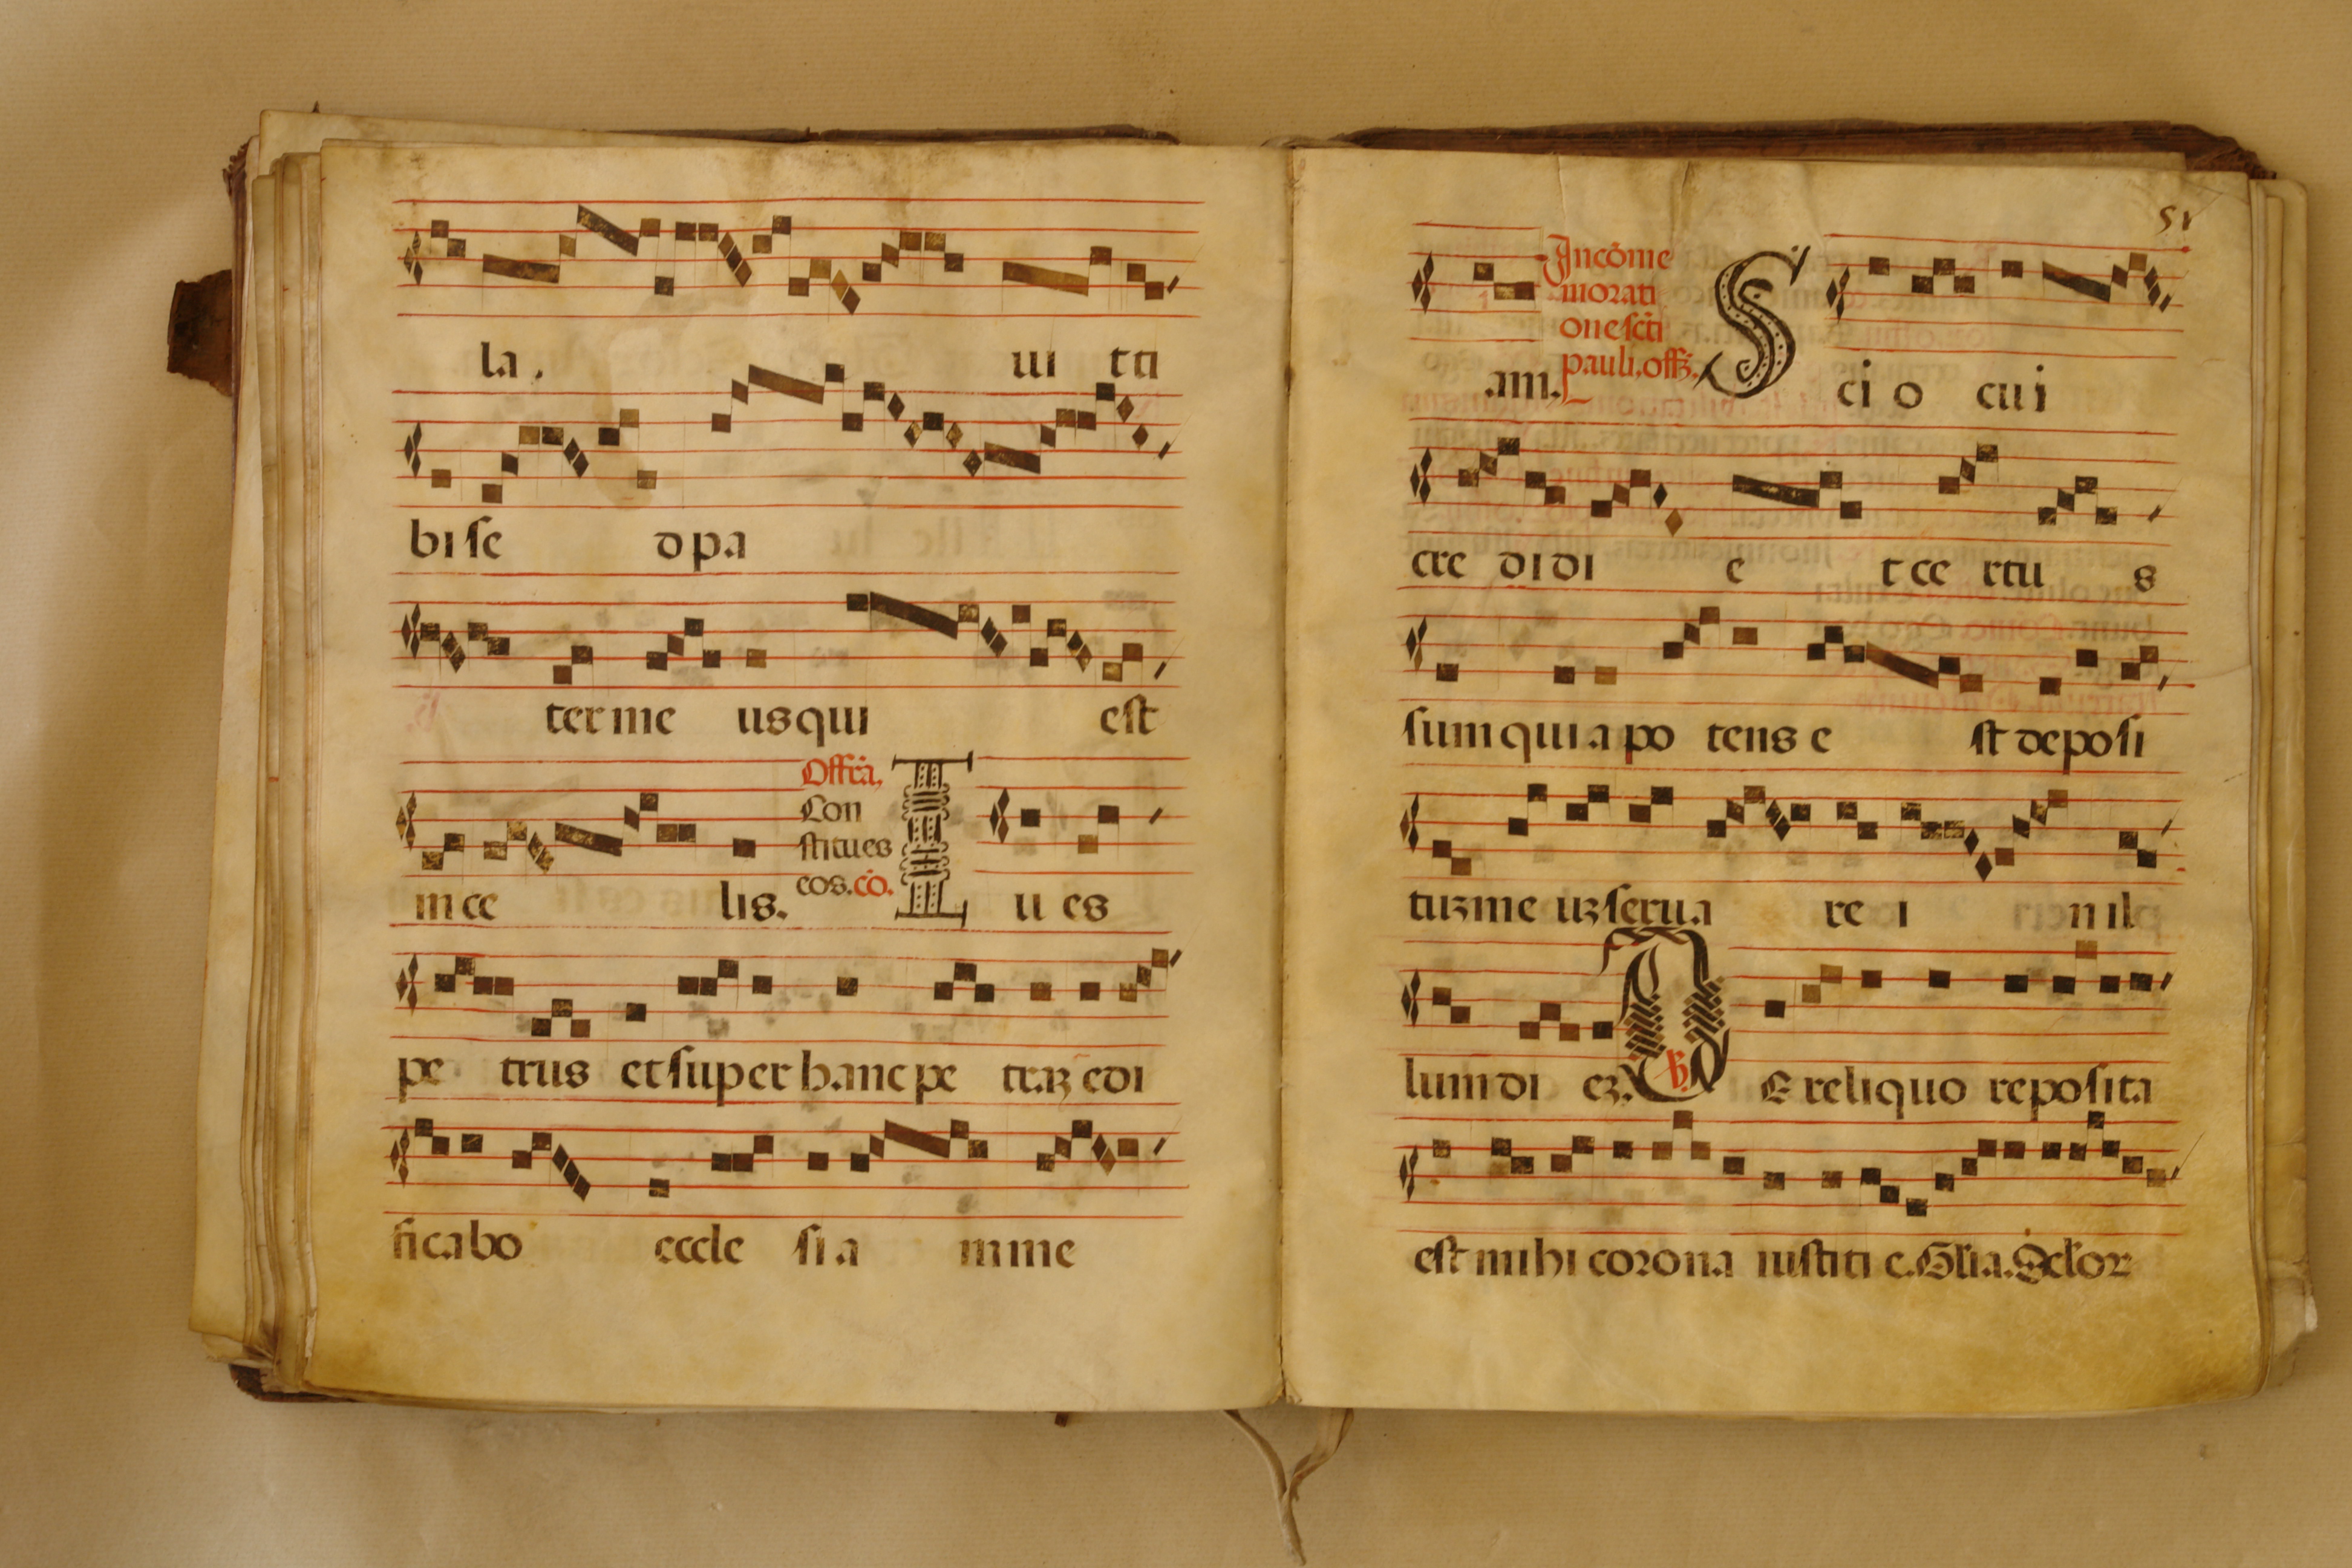 la. ui tti
bi se d pa
ter me us qui est
in ce lis.
Offrã,
Con
stitues
eos. cõ.
T u es
pe trus et super hanc pe traʒ edi
ficabo eccle si a mme
51
am.
In cõme
morati
one scti
pauli, off.
S ci o cui
cre di di e t ce rtu s
sum qui a po tens e st deposi
tuʒ me uʒ serua re i n il
lum di eʒ. ℣. D E reliquo reposita
est mihi corona iustiti e. Glia. Sclor